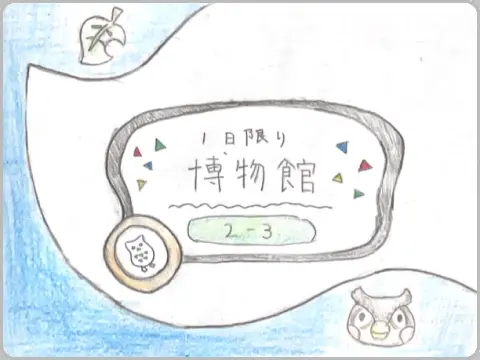 1日限り
博物館
2-3